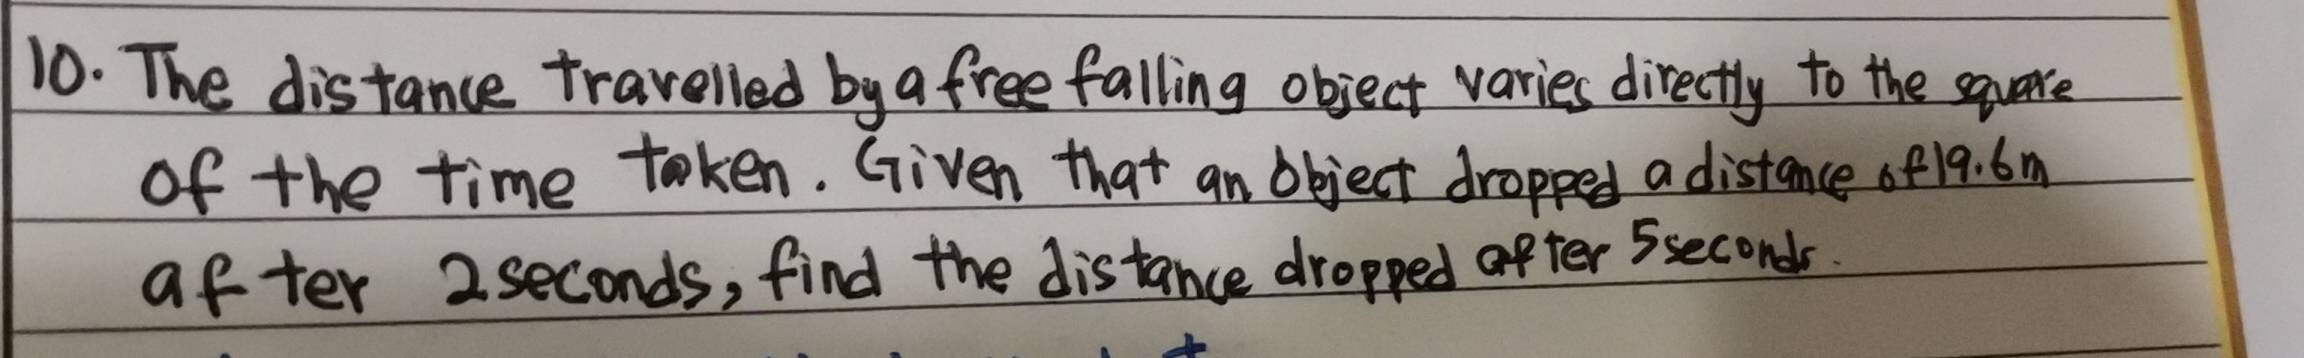 10. The distance travelled by a free falling object varies directly to the square
of the time taken. Given that an object dropped a distance of 19.6m
after 2 seconds, find the distance dropped after 5 seconds.